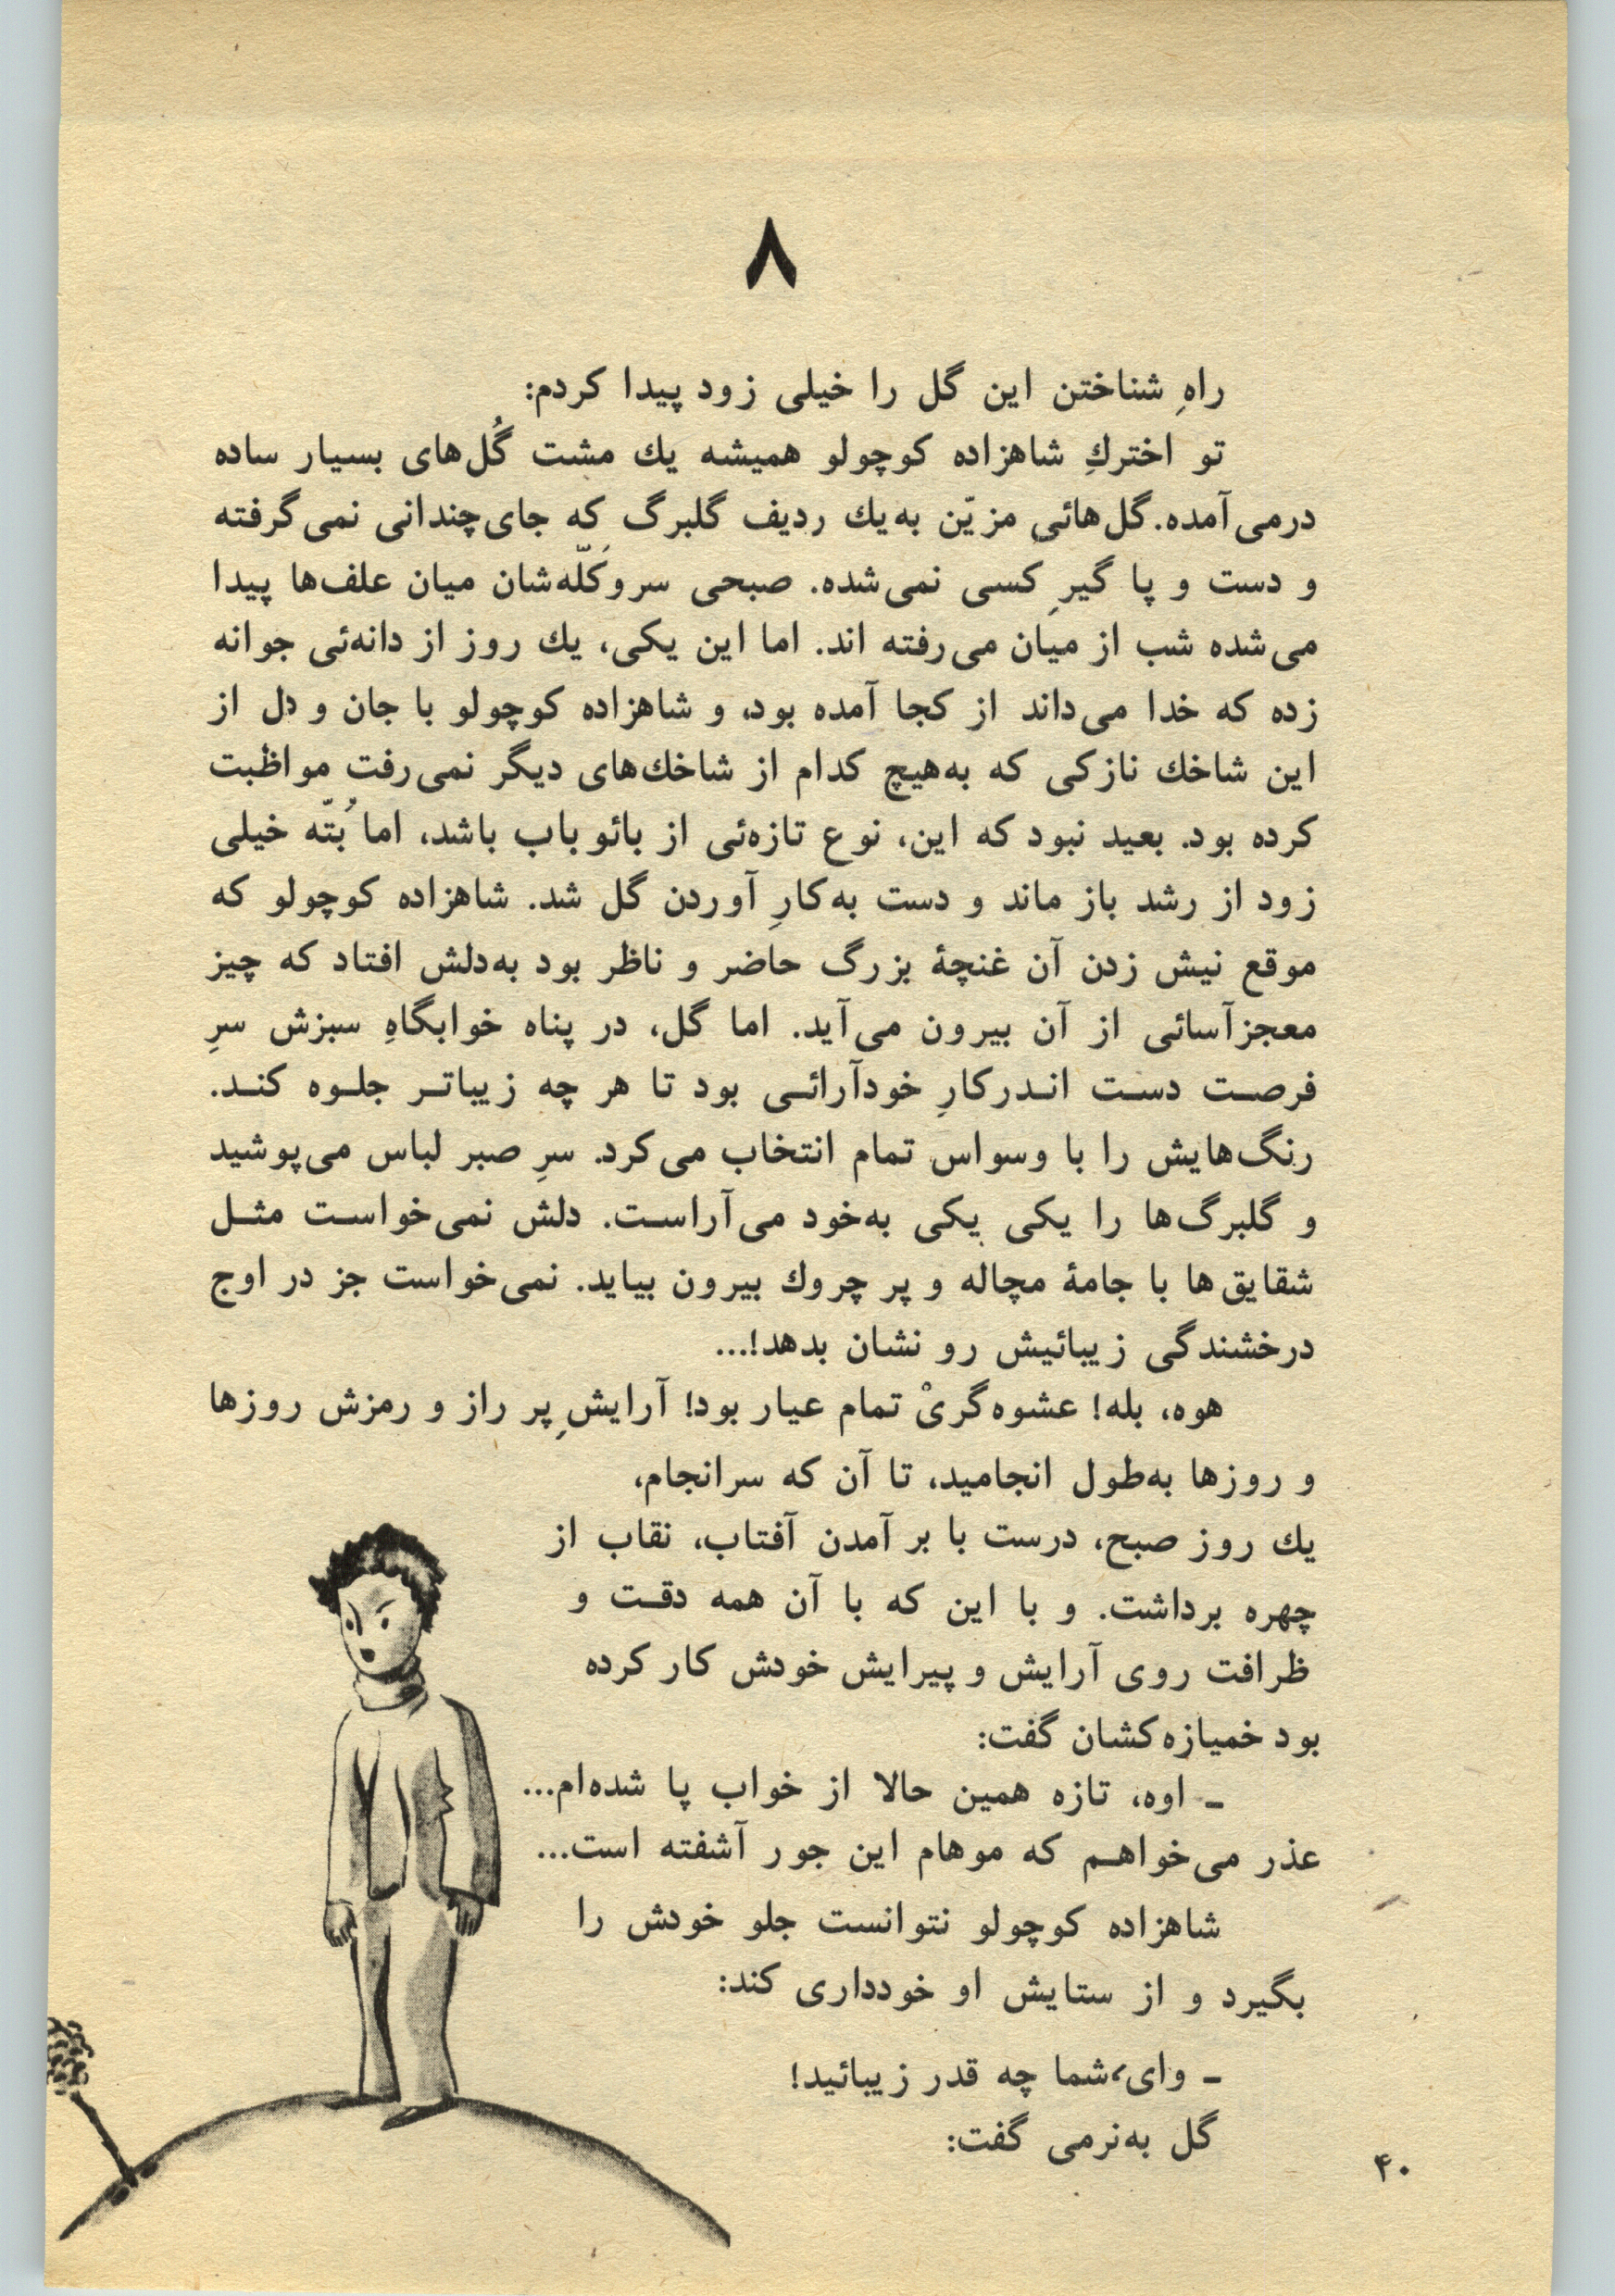 ۸
راهِ شناختن این گل را خیلی زود پیدا کردم:
تو اختركِ شاهزاده کوچولو همیشه یك مشت گُل‌های بسیار ساده
درمی‌آمده. گل‌هائی مزیّن به‌یك ردیف گلبرگ که جای‌چندانی نمی‌گرفته
و دست و پا گیرِ کسی نمی‌شده. صبحی سروکَلّه‌شان میان علف‌ها پیدا
می‌شده شب از میان می‌رفته اند. اما این یکی، یك روز از دانه‌ئی جوانه
زده که خدا می‌داند از کجا آمده بود، و شاهزاده کوچولو با جان و دل از
این شاخك نازکی که به‌هیچ کدام از شاخك‌های دیگر نمی‌رفت مواظبت
کرده بود. بعید نبود که این، نوع تازه‌ئی از بائوباب باشد، اما بُتّه خیلی
زود از رشد باز ماند و دست به‌کارِ آوردن گل شد. شاهزاده کوچولو که
موقع نیش زدن آن غنچهٔ بزرگ حاضر و ناظر بود به‌دلش افتاد که چیز
معجزآسائی از آن بیرون می‌آید. اما گل، در پناه خوابگاهِ سبزش سرِ
فرصت دست اندرکارِ خودآرائی بود تا هر چه زیباتر جلوه کند.
رنگ‌هایش را با وسواس تمام انتخاب می‌کرد. سرِ صبر لباس می‌پوشید
و گلبرگ‌ها را یکی یکی به‌خود می‌آراست. دلش نمی‌خواست مثل
شقایق‌ها با جامهٔ مچاله و پر چروك بیرون بیاید. نمی‌خواست جز در اوج
درخشندگی زیبائیش رو نشان بدهد!...
هوه، بله! عشوه‌گریْ تمام عیار بود! آرایشِ پر راز و رمزش روزها
و روزها به‌طول انجامید، تا آن که سرانجام،
یك روز صبح، درست با بر آمدن آفتاب، نقاب از
چهره برداشت. و با این که با آن همه دقت و
ظرافت روی آرایش و پیرایش خودش کار کرده
بود خمیازه‌کشان گفت:
ـ اوه، تازه همین حالا از خواب پا شده‌ام...
عذر می‌خواهم که موهام این جور آشفته است...
شاهزاده کوچولو نتوانست جلو خودش را
بگیرد و از ستایش او خودداری کند:
ـ وای، شما چه قدر زیبائید!
گل به‌نرمی گفت:
۴۰